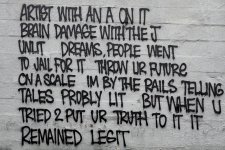 ARTIST WITH AN A ON IT
BRAIN DAMAGE WITH THE J
UNLIT DREAMS, PEOPLE WENT
TO JAIL FOR IT THROW UR FUTURE
ON A SCALE IM BY THE RAILS TELLING
TALES PROBLY LIT BUT WHEN U
TRIED 2 PUT UR TRUTH TO IT IT
REMAINED LEGIT